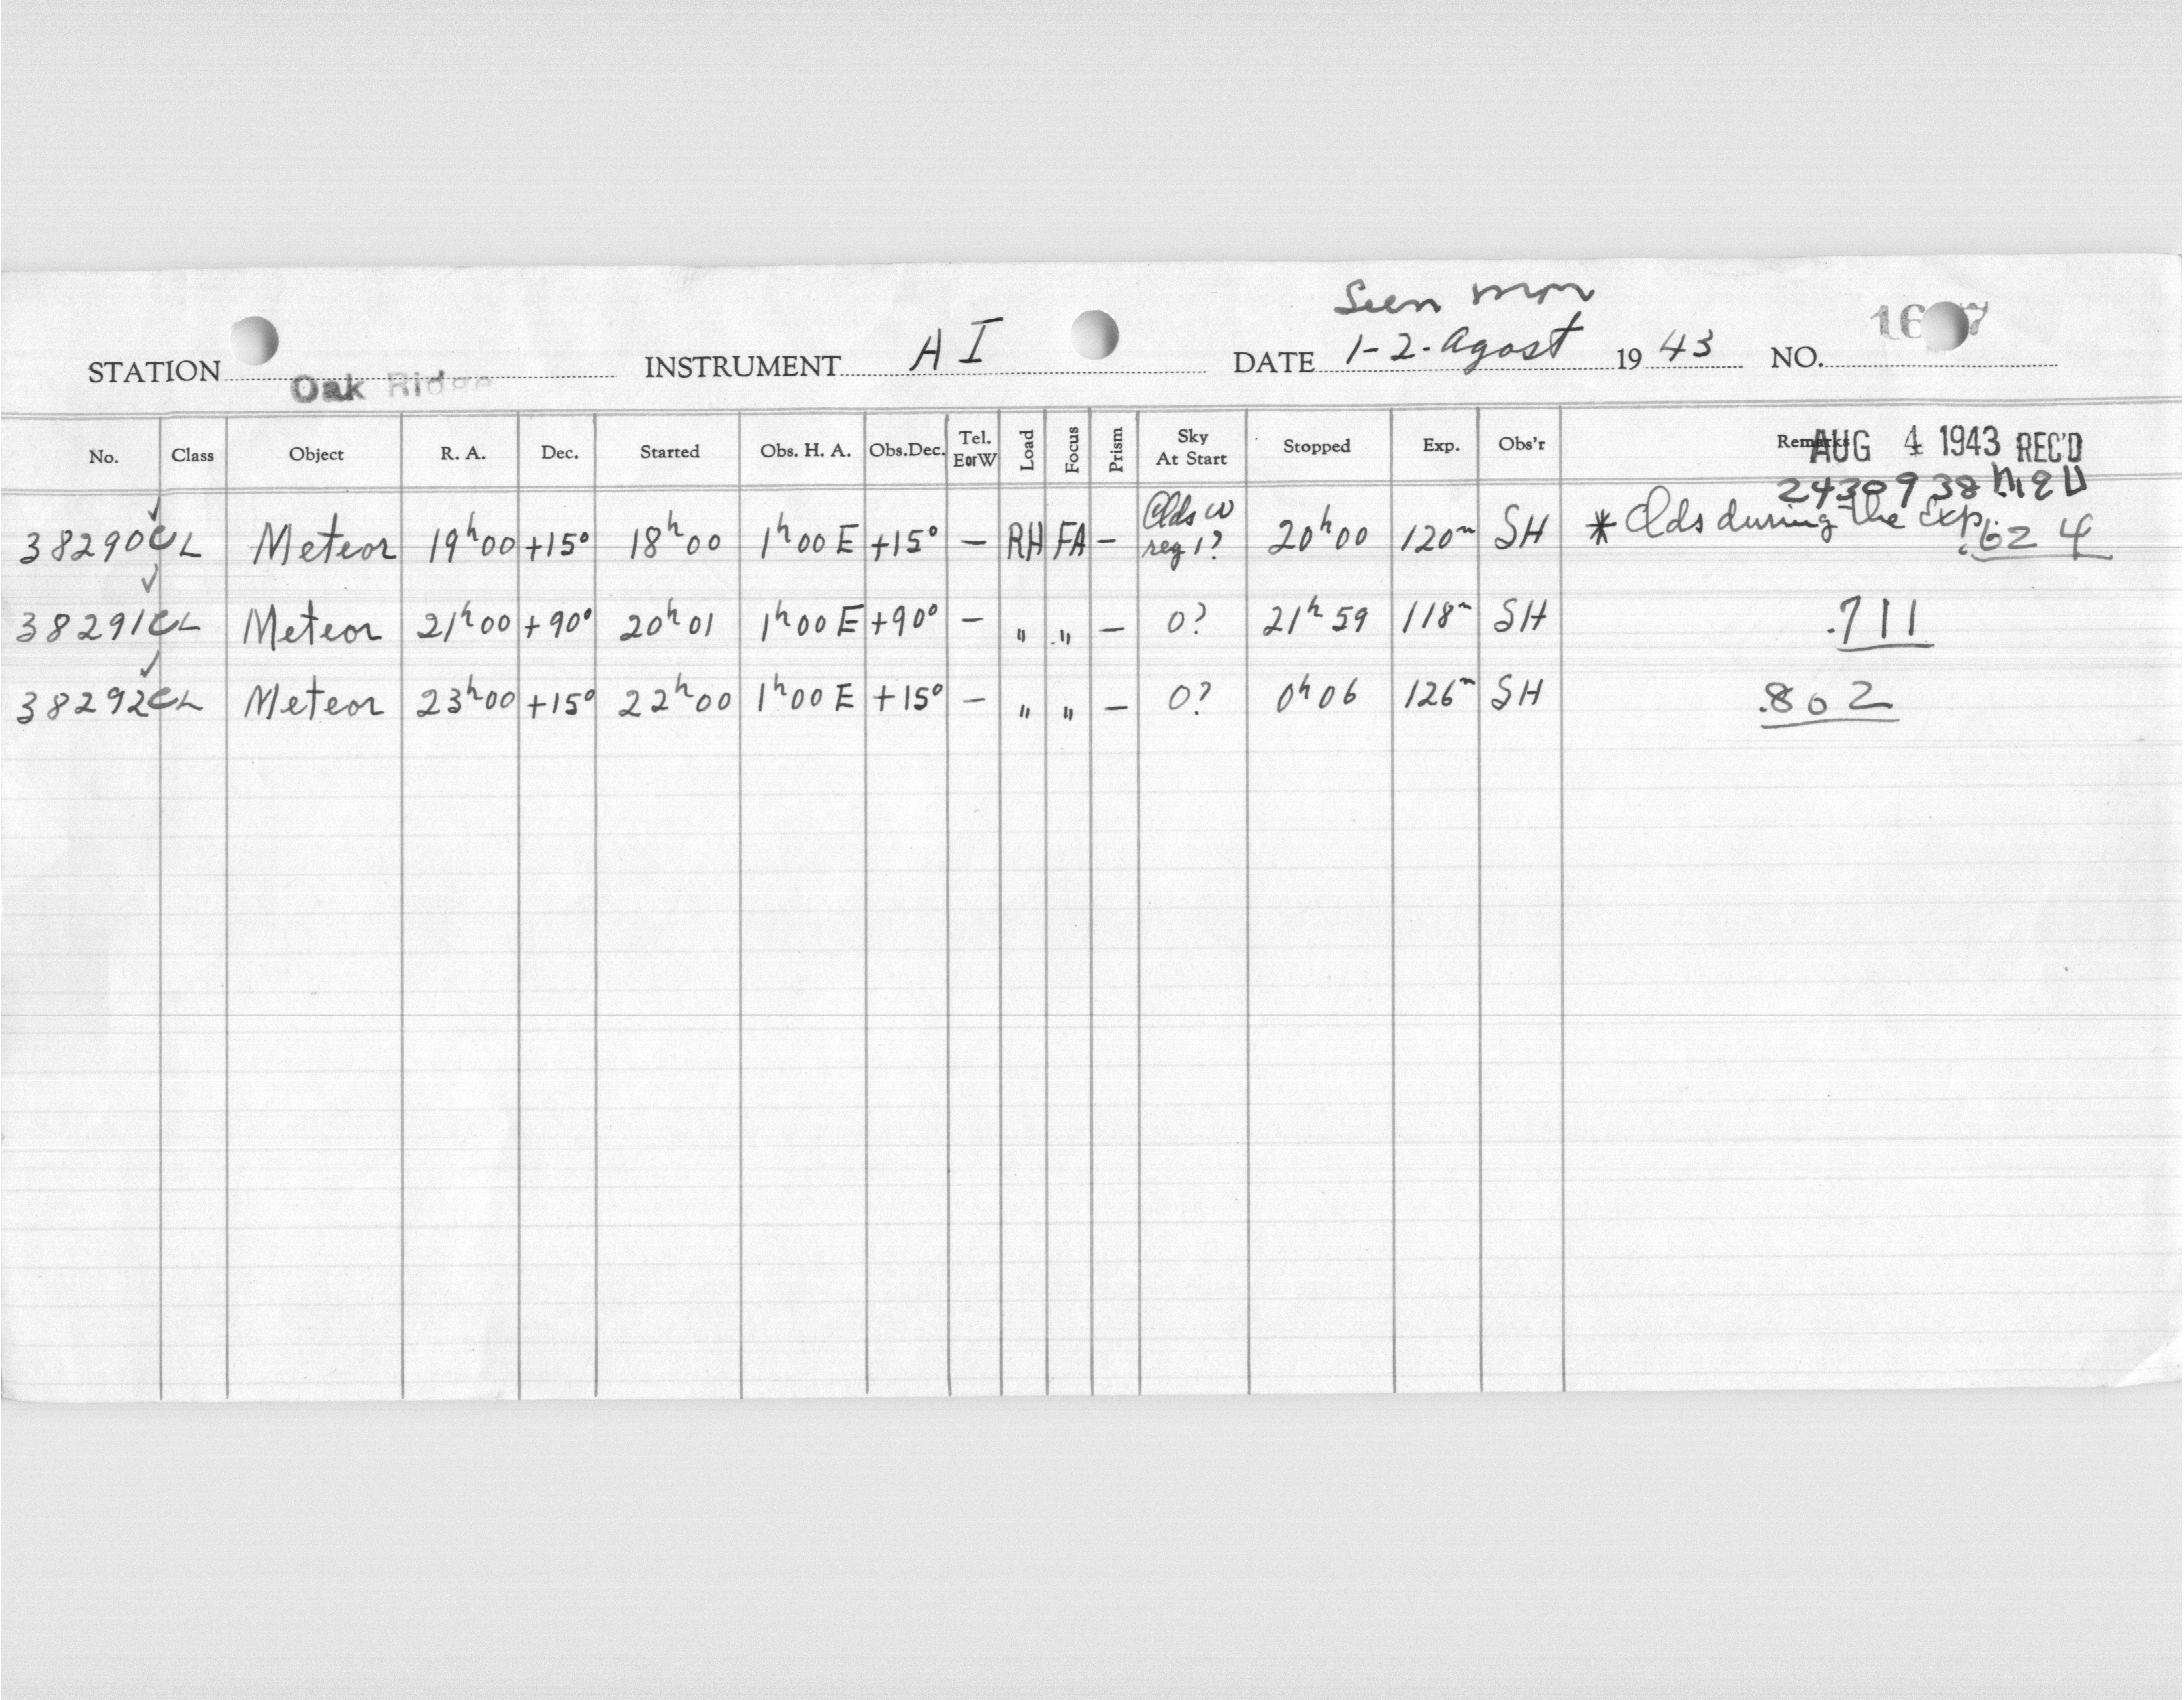 Seen
STATION Oak Ridge INSTRUMENT AI DATE 1-2-Agost 1943 NO.
No. Class Object R. A. Dec. Started Obs. H. A. Obs.Dec. Tel. EorW Load Focus Prism Sky At Start Stopped Exp. Obs'r Remarks
AUG 4 1943 REC'D
2430938
38290 CL Meteor 19h00 +15° 18h00 1h00 E +15° – RH FA – Clds W reg 1? 20h00 120m SH * Clds during the Exp. .624
38291 CL Meteor 21h00 +90° 20h01 1h00 E +90° – " " – 0? 21h59 118m SH .711
38292 CL Meteor 23h00 +15° 22h00 1h00 E +15° – " " – 0? 0h06 126m SH .802